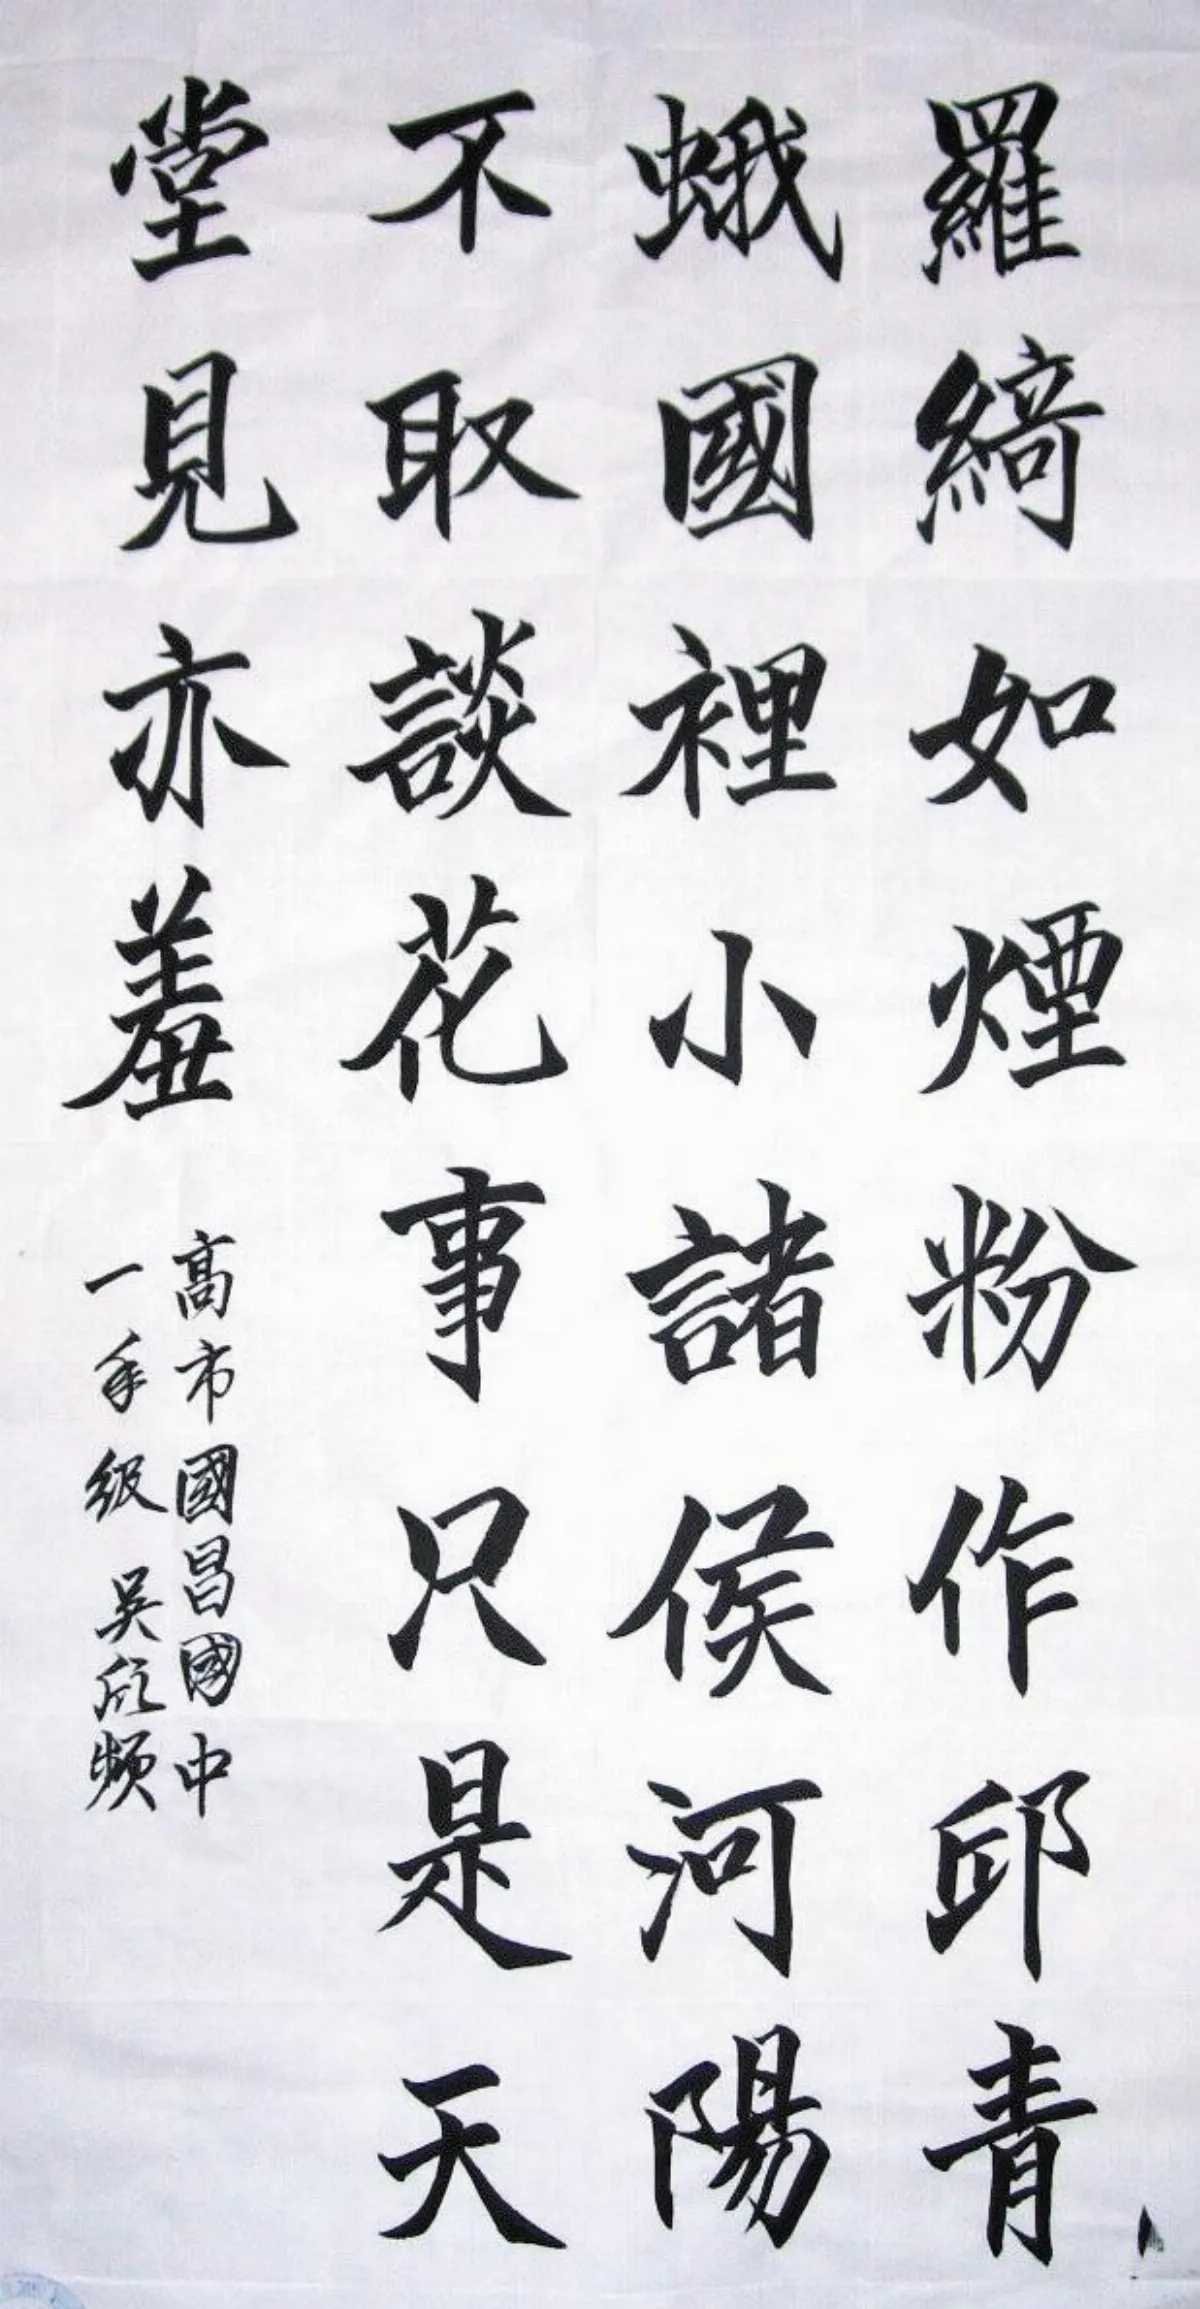 羅綺如煙粉作邱青
蛾國裡小諸侯河陽
不取談花事只是天
堂見亦羞
高市國昌國中
一年級吳欣頻